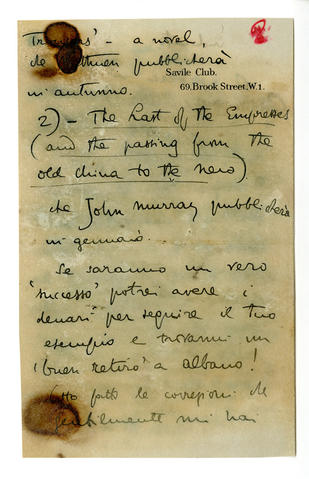 2.
- a novel,
che Methuen pubblicherà
Savile Club.
69, Brook Street, W.1.
in autunno.
2) - The Last of the Empresses
(and the passing from the
old China to the new)
che John Murray pubblicherà
in gennaio.
Se saranno un vero
'successo' potrei avere i
denari per seguire il tuo
esempio e trovarmi un
'buen retiro' a Albano!
Ho fatto le correzioni che
gentilmente mi hai